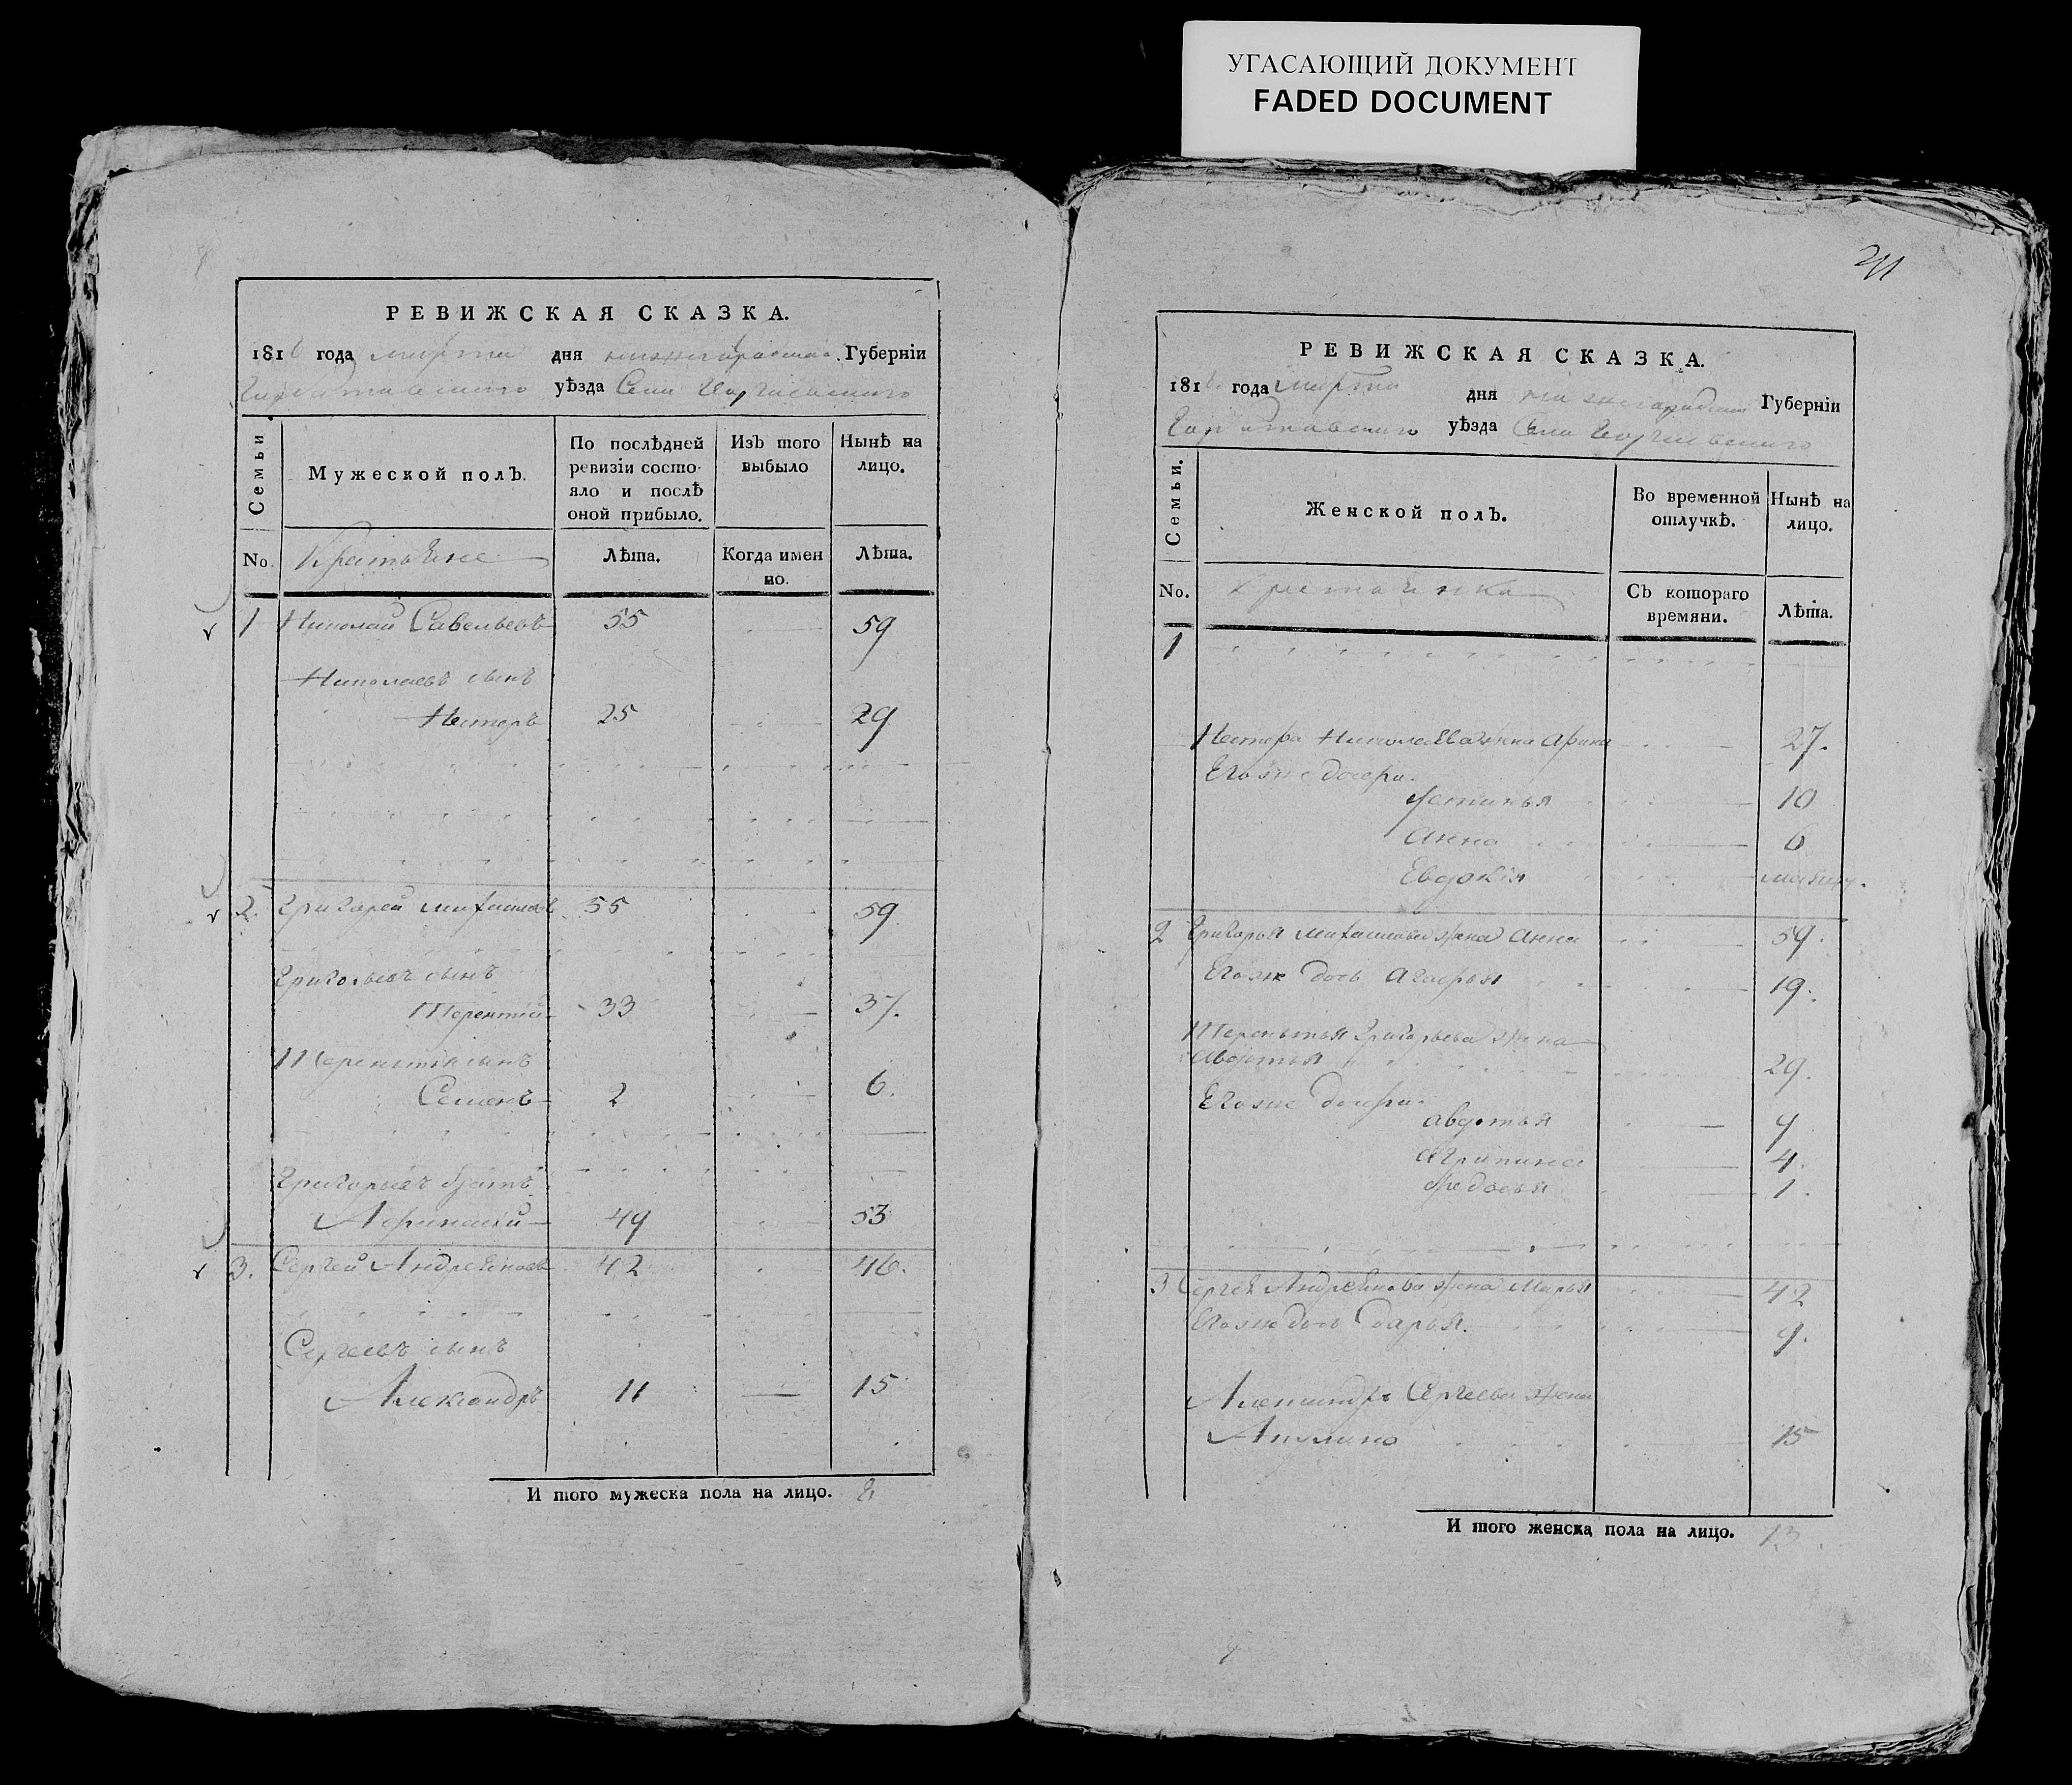 УГАСАЮЩИЙ ДОКУМЕНТ
FADED DOCUMENT
РЕВИЖСКАЯ СКАЗКА.
1816 года марта дня Губерніи
уѣзда Села
Семьи
Мужеской полъ.
По послѣдней
ревизіи состо-
яло и послѣ
оной прибыло.
Изъ того
выбыло
Нынѣ на
лицо.
No.
Лѣта.
Когда имен
но.
Лѣта.
1 Николай Савельевъ 55 59
Николаевъ сынъ
Нестеръ 25 29
2. Григорей 55 59
Григорьевъ сынъ
Терентий 33 37.
Терентья сынъ
Семенъ 2 6.
Григорьевъ братъ
49 53
3. Сергей Андреяновъ 42 46.
Сергеевъ сынъ
Александръ 11 15
И того мужеска пола на лицо. 8
РЕВИЖСКАЯ СКАЗКА.
1816 года марта дня Губерніи
уѣзда Села
Семьи.
Женской полъ.
Во временной
отлучкѣ.
Нынѣ на
лицо.
No.
Съ котораго
времяни.
Лѣта.
1
Нестера Николаева жена Арина 27.
Его же дочери
Устинья 10
Анна 6
Евдокія
2 Григорья жена Анна 59.
Его же дочь 19.
Терентья Григорьева жена
Авдотья 29.
Его же дочери
Авдотья 9
Агрипина 4.
Федосья 1.
3 Сергея Андреянова жена Марья 42
Его же дочь Дарья. 9.
Александра Сергеева жена
Акулина 15
И того женска пола на лицо. 13